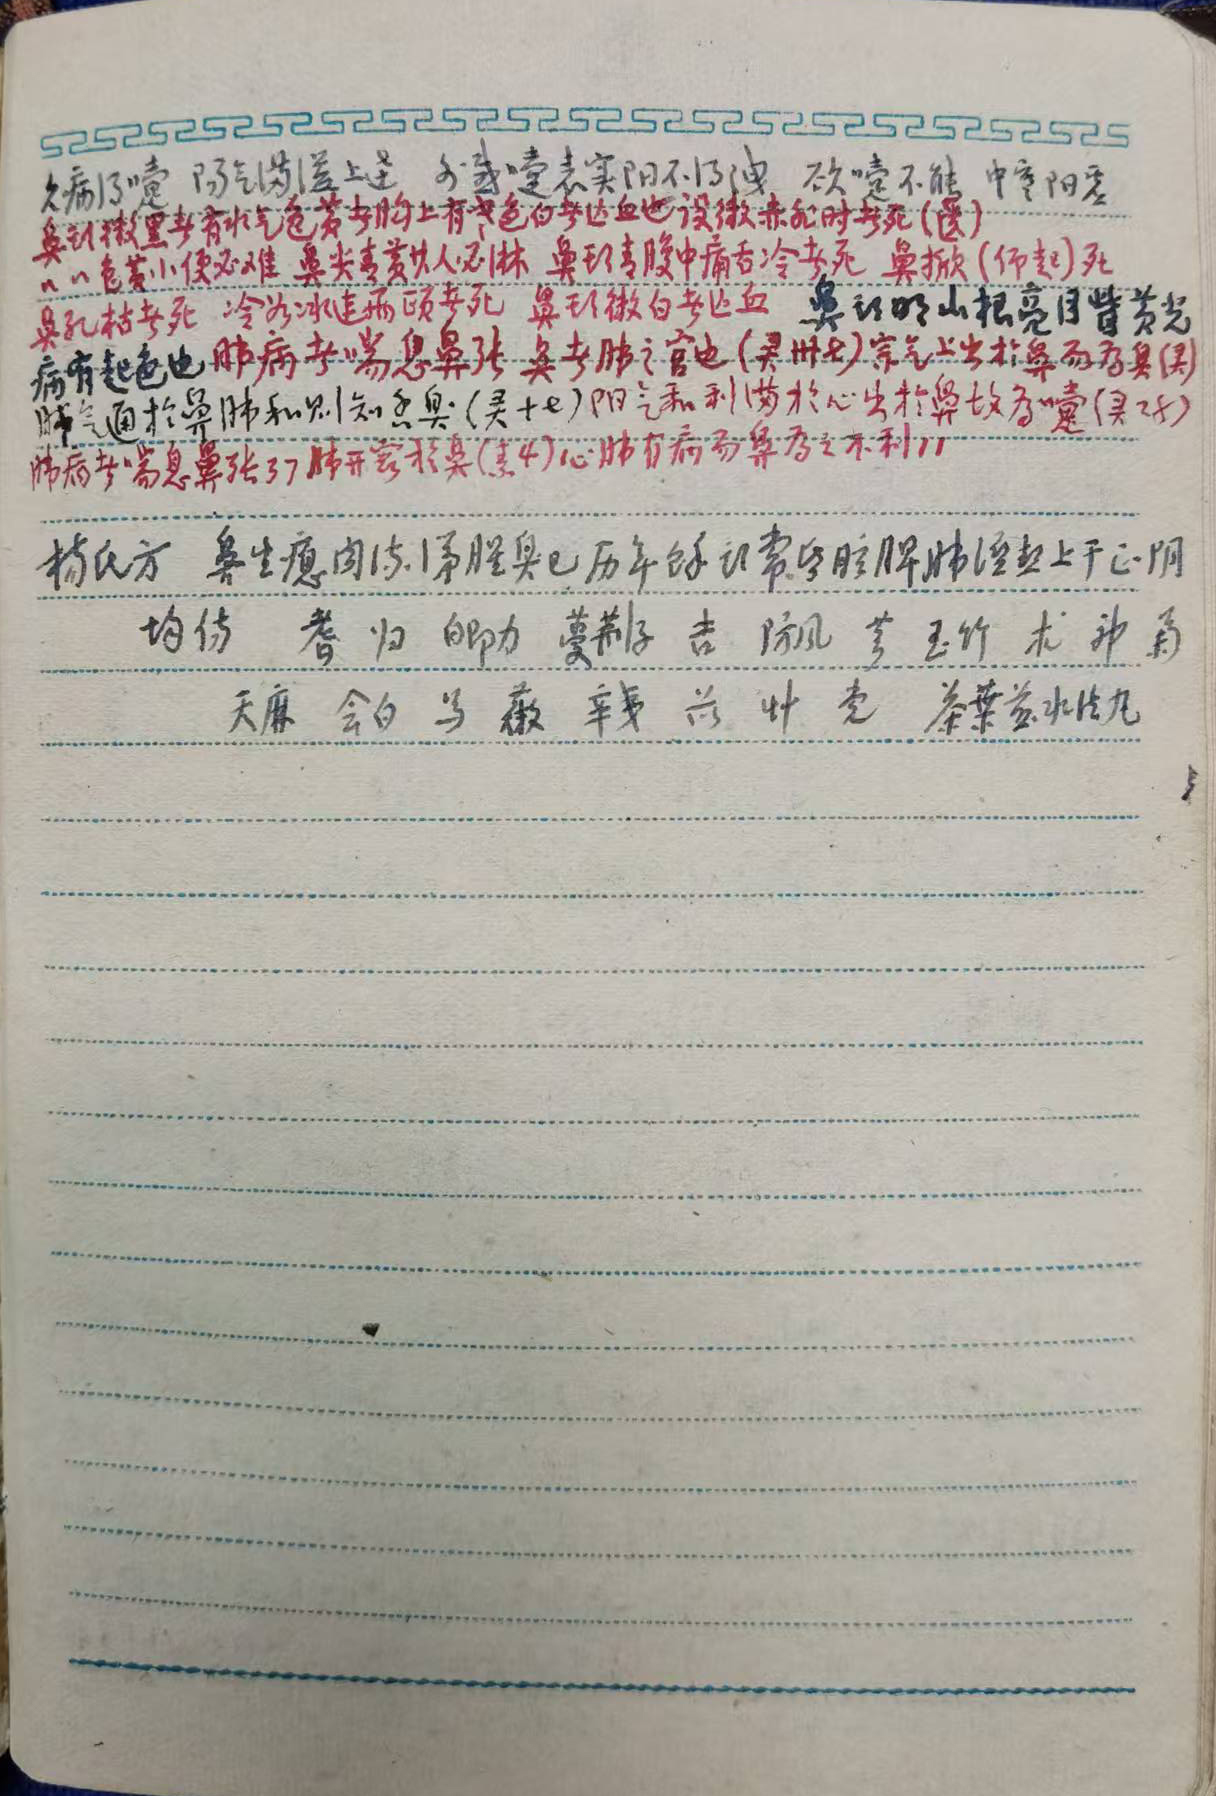 久病得嚏 阳气满溢上达 外感嚏表实阳不得洩 欲嚏不能 中寒阳虚
鼻头微黑者有水气色黄者胸上有寒色白者亡血也设微赤非时者死(医)
〃〃色黄小便必难 鼻尖青黄其人必淋 鼻头青腹中痛舌冷者死 鼻掀(仰起)死
鼻孔枯者死 冷如冰连两颐者死 鼻头微白者亡血 鼻头明山根亮目眥黄光
病有起色也 肺病者喘息鼻张 鼻者肺之官也(灵卅七)宗气上出於鼻而为臭(灵)
肺气通於鼻肺和则知香臭(灵十七)阳气和利满於心出於鼻故为嚏(灵28)
肺病者喘息鼻张37 肺开窍於鼻(素4)心肺有病而鼻为之不利11
杨氏方 鼻生瘜肉 涕腥臭已历年 头常 脏脾肺湿热上干 阴
均伤 耆 归 白 力 蔓荆子 吉 防风 芩 玉竹 术 神 菊
天麻 会白 马 薇 辛夷 苡 艸 壳 茶葉 水法丸